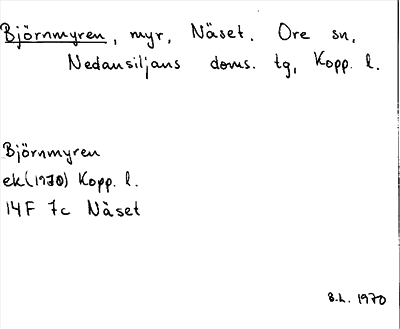 Björnmyren, myr, Näset. Ore sn,
Nedansiljans doms. tg, Kopp. l.
Björnmyren
ek(1970) Kopp. l.
14F 7c Näset
B.L. 1970